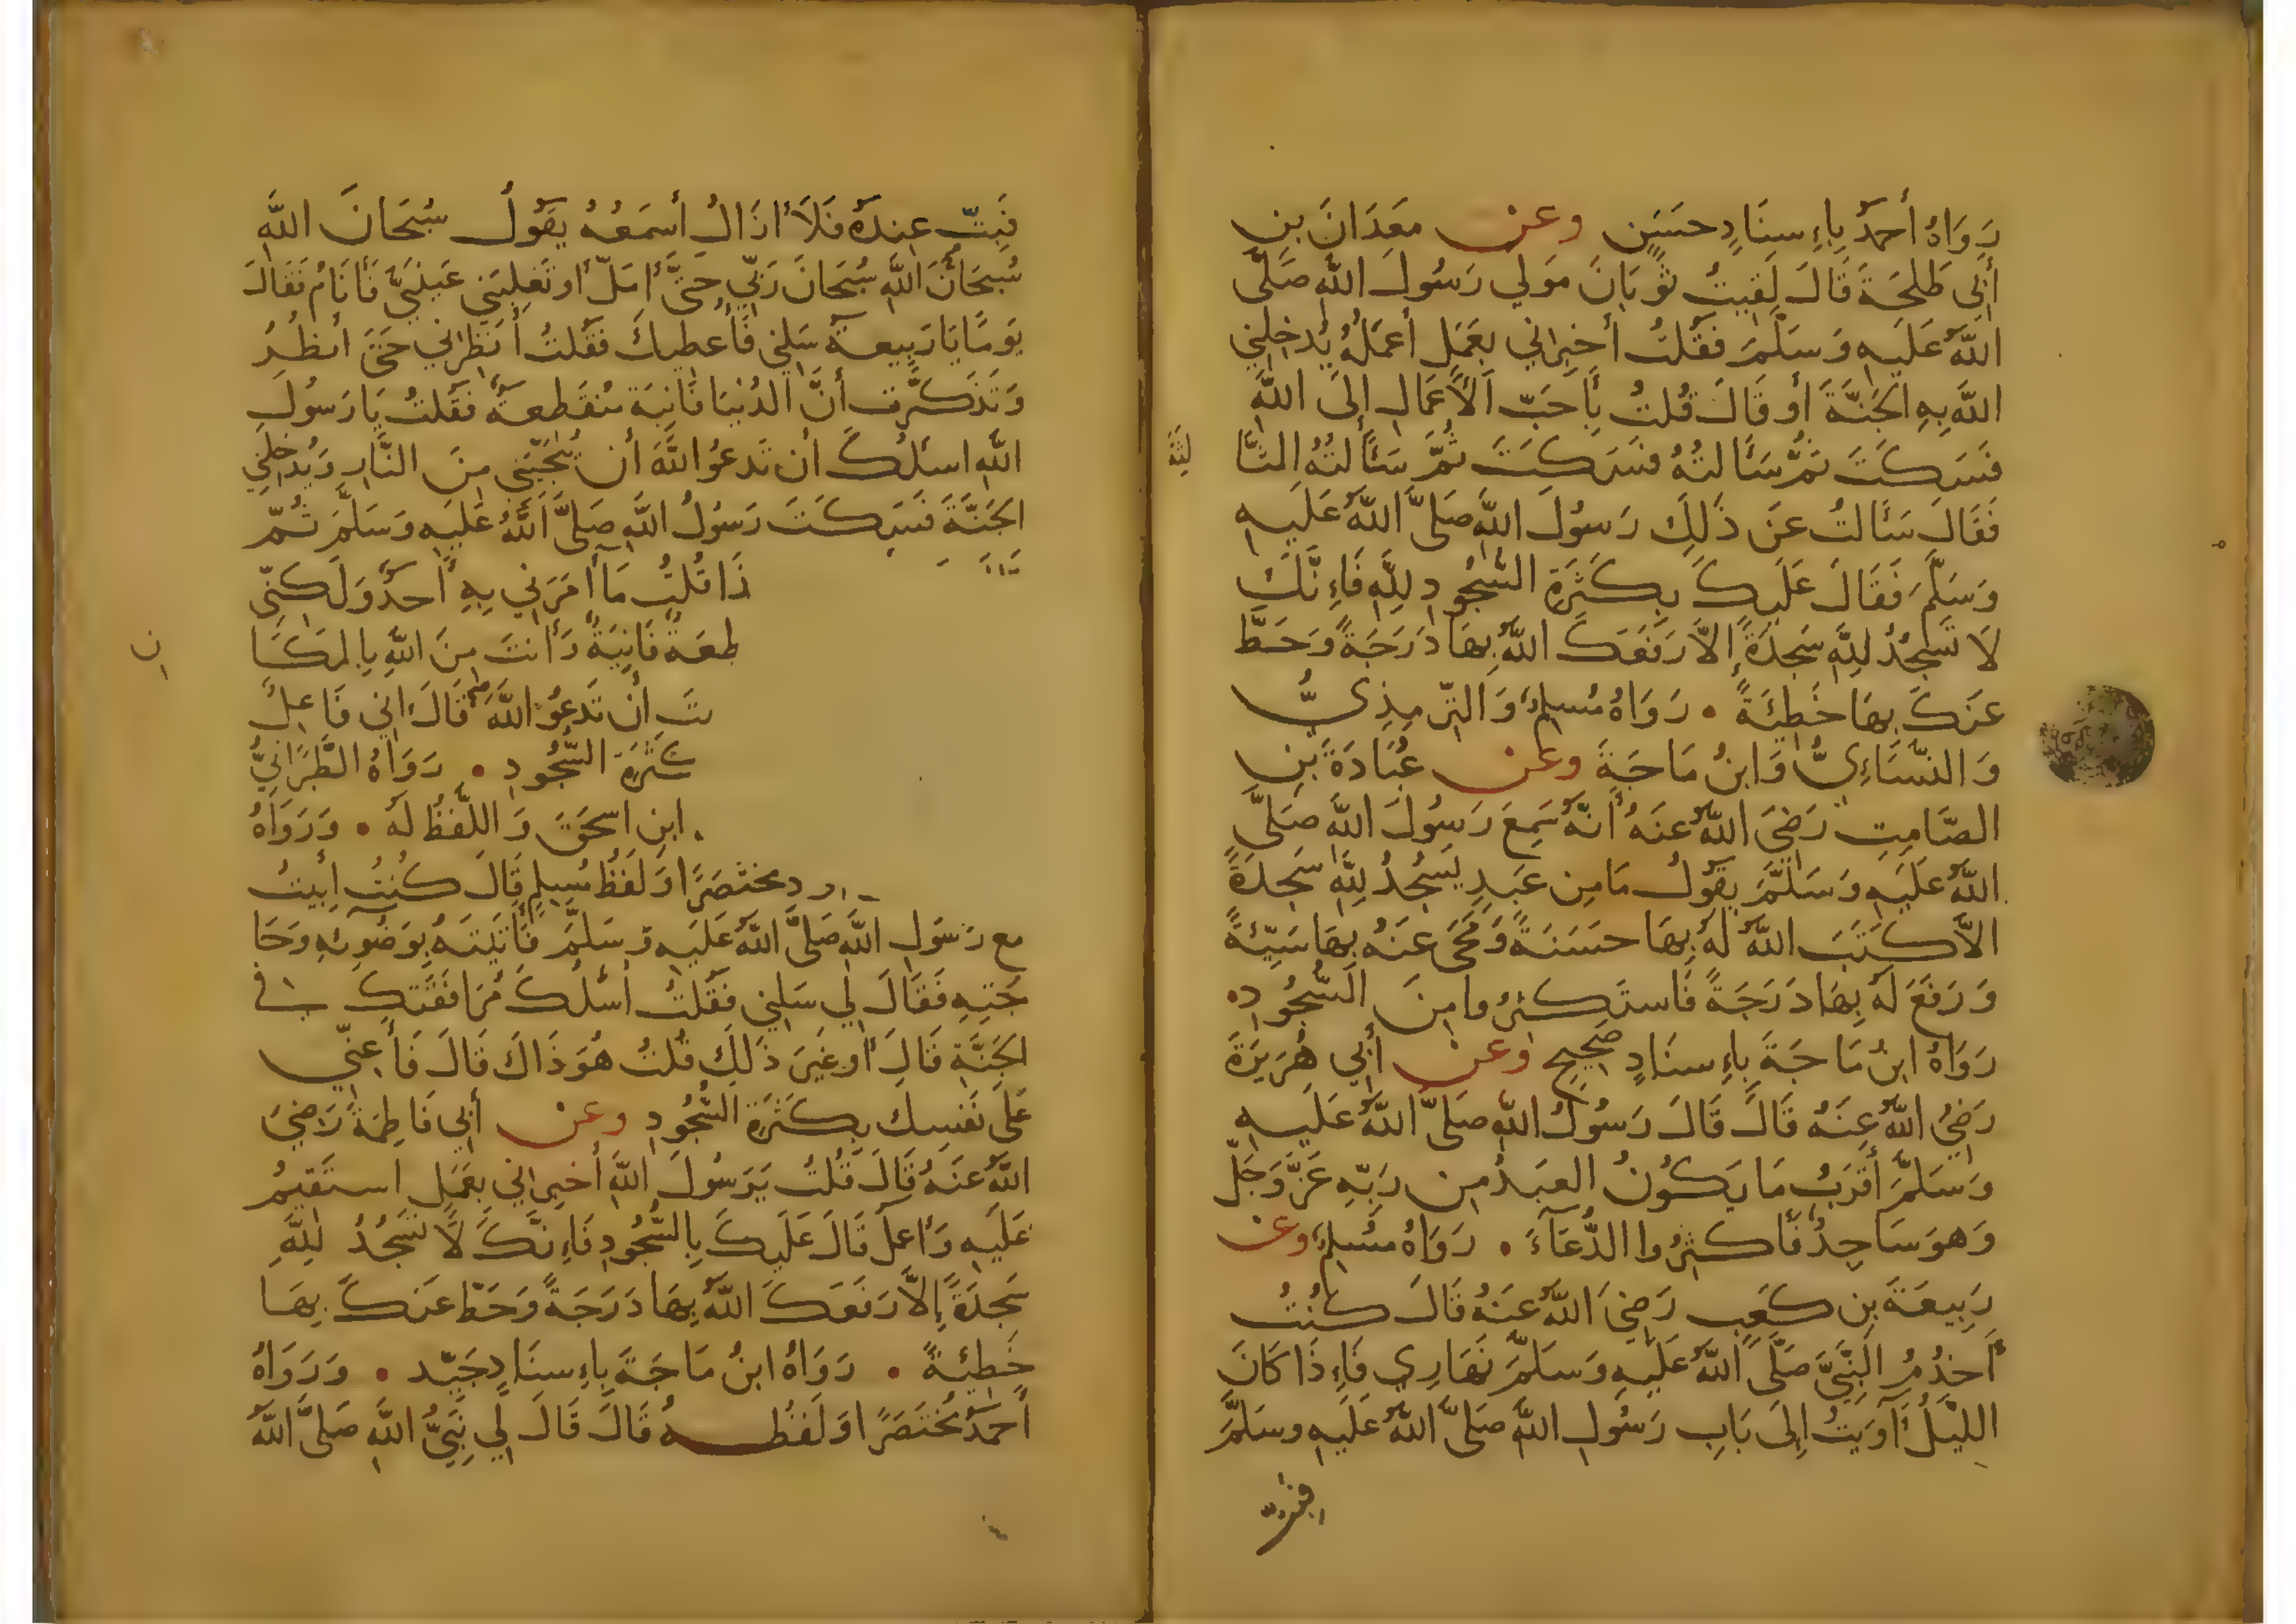 رَوَاهُ أَحْمَدُ بِإِسنَادٍ حَسَنٍ وعن مَعدَانَ بنِ
أَبِي طَلحَةَ قَالَ لَقِيتُ ثَوبَانَ مَولي رَسُولَ اللَّهِ صَلَّى
اللَّهُ عَلَيهِ وَسَلَّمَ فَقُلتُ أَخبِراني بِعَمَلٍ أَعمَلُهُ يُدخِلنِي
اللَّهَ بِهِ الجَنَّةَ أَو قَالَ قُلتُ بِأَحَبّ الأَعمَالِ إِلَى اللَّهِ
فَسَكَتَ ثُمَّ سَأَلتُهُ فَسَكَتَ ثُمَّ سَأَلتُهُ الثَّا
لِثَةَ
فَقَالَ سَأَلتُ عَن ذَلِكَ رَسُولَ اللَّهِ صَلَّى اللَّهُ عَلَيهِ
وَسَلَّمَ فَقَالَ عَلَيكَ بِكَثرَةِ السُّجُودِ لِلَّهِ فَإِنَّكَ
لَا تَسجُدُ لِلَّهِ سَجدَةً إِلَّا رَفَعَكَ اللَّهُ بِهَا دَرَجَةً وَحَطَّ
عَنكَ بِهَا خَطِئَةً • رَوَاهُ مُسلِمٌ وَالتِّرمِذِيُّ
وَالنَّسَاءِيُّ وَابنُ مَاجَةَ وعن عُبَادَةَ بنِ
الصَّامِتِ رَضِيَ اللَّهُ عَنهُ أَنَّهُ سَمِعَ رَسُولَ اللَّهِ صَلَّى
اللَّهُ عَلَيهِ وَسَلَّمَ يَقُولُ مَا مِن عَبدٍ يَسجُدُ لِلَّهِ سَجدَةً
الَّا كَتَبَ اللَّهُ لَهُ بِهَا حَسَنَةً وَمَحَى عَنهُ بِهَا سَيِّئَةً
وَرَفَعَ لَهُ بِهَا دَرَجَةً فَاستَكثِرُوا مِنَ السُّجُودِ •
رَوَاهُ ابنُ مَاجَةَ بِإِسنَادٍ صَحِيحٍ وعن أَبِي هُرَيرَةَ
رَضِيُ اللَّهُ عَنهُ قَالَ قَالَ رَسُولُ اللَّهِ صَلَّى اللَّهُ عَلَيهِ
وَسَلَّمَ أَقرَبُ مَا يَكُونُ العَبدُ مِن رَبِّهِ عَزَّ وَجَلَّ
وَهوَ سَاجِدٌ فَأَكثِرُوا الدُّعَآءَ • رَوَاهُ مُسلِمٌ وعن
رَبِيعَةَ بنِ كَعبٍ رَضِيَ اللَّهُ عَنهُ قَالَ كُنتُ
أَخدُمُ النَّبِيَّ صَلَّى اللَّهُ عَلَيهِ وَسَلَّمَ نَهَارِي فَإِذَا كَانَ
اللَّيلُ آوَيتُ إِلَى بَابِ رَسُولِ اللَّهِ صَلَّى اللَّهُ عَلَيهِ وسَلَّمَ
فَبِتّ
فَبِتّ عِندَهُ فَلَا ازَالُ أَسمَعُهُ يَقُولُ سُبحَانَ اللَّهِ
سُبحَانَ اللَّهِ سُبحَانَ رَبِّي حَتَّى أَمَلّ أَو تَغلِبَنِي عَينَيَّ فَأَنَامُ فَقَالَ
يَومًا يَا رَبِيعَةُ سَلنِي فَأُعطِيكَ فَقُلتُ أَنظِراني حَتَّى أَنظُرُ
وَتَذَكَّرتُ أَنَّ الدُنيَا فَانِيَة مُنقَطِعَةٌ فَقُلتُ يَا رَسُولَ
اللَّهِ اسئَلُكَ أَن تَدعُوَ اللَّهَ أَن يُنجِّيَنِي مِنَ النَّارِ وَيُدخِلنِي
الجَنَّةَ فَسَكَتَ رَسُولُ اللَّهِ صَلَّى اللَّهُ عَلَيهِ وَسَلَّمَ ثُمّ
ذَا قُلتُ مَا أَمَرَنِي بِهِ أَحَدٌ وَلَكِنِّي
طِعَةٌ فَانِيَةٌ وَأَنتَ مِنَ اللَّهِ بِالمَكَا
ن
تَ أَن تَدعُوَ اللَّهَ قَالَ اني فَاعِلٌ
كَثرَةِ السُّجُودِ • رَوَاهُ الطَّبَرَانِيُّ
ابنِ اسحَقَ وَاللَّفظُ لَهُ • وَرَوَاهُ
د مختَصَرًا وَلَفظُ مُسلِمٍ قَالَ كُنتُ أَبِيتُ
مع رَسُولِ اللَّهِ صَلَّى اللَّهُ عَلَيهِ وَسَلَّمَ فَأَتَيتَهُ بِوَضُوئِهِ وَحَا
جَتِهِ فَقَالَ لِي سَلنِي فَقُلتُ أَسئَلُكَ مُرَافَقَتِكَ فِي
الجَنَّةِ قَالَ أَو غَيرَ ذَلِكَ قُلتُ هُوَ ذَاكَ قَالَ فَأَعِنِّي
عَلَى نَفسِكَ بِكَثرَةِ السُّجُودِ وعن أَبِي فَاطِمَةَ رَضِيَ
اللَّهُ عَنهُ قَالَ قُلتُ يَرَسُولَ اللَّهِ أَخبِراني بِعَمَلٍ استَقِيمُ
عَلَيهِ وَأَعمَلُ قَالَ عَلَيكَ بِالسُّجُودِ فَإِنَّكَ لَا تَسجُدُ لِلَّهِ
سَجدَةً إِلَّا رَفَعَكَ اللَّهُ بِهَا دَرَجَةً وَحَطَّ عَنكَ بِهَا
خَطِيئَةً • رَوَاهُ ابنُ مَاجَةَ بِإِسنَادٍ جَيِّد • وَرَوَاهُ
أَحمَدُ مُختَصَرًا وَلَفظُهُ قَالَ قَالَ لِي نَبِيُّ اللَّهِ صَلَّى اللَّهُ